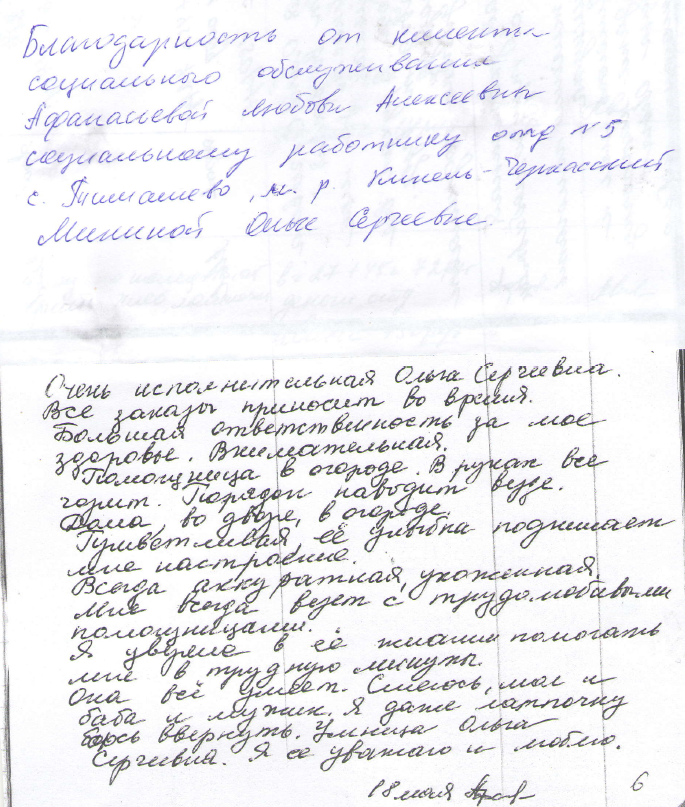 Благодарность от клиента
социального обслуживания
Афанасьевой Любови Алексеевны
социальному работнику отд №5
с. Тимашево, м. р. Кинель-Черкасский
Мининой Ольге Сергеевне.
Очень исполнительная Ольга Сергеевна.
Все заказы приносит во время.
Большая ответственность за мое
здоровье. Внимательная.
Помощница в огороде. В руках все
горит. Порядок наводит везде.
Дома, во дворе, в огороде.
Приветливая, её улыбка поднимает
мне настроение.
Всегда аккуратная, ухоженная.
Мне всегда везет с трудолюбивыми
помощницами.
Я уверена в её желании помогать
мне в трудную минуту.
Она всё умеет. Смеюсь, мол и
баба и мужик. Я даже лампочку
боюсь ввернуть. Умница Ольга
Сергеевна. Я её уважаю и люблю.
18 мая
6